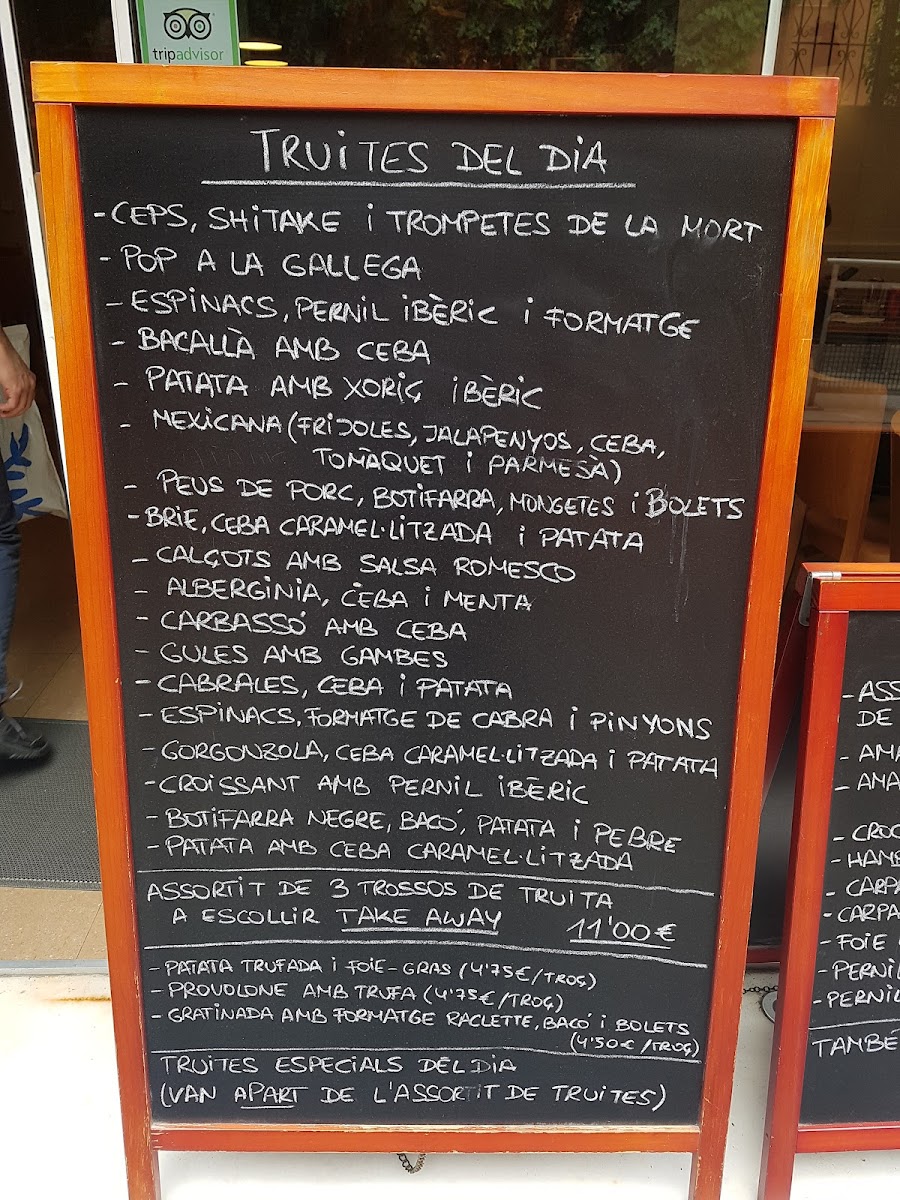 tripadvisor
TRUITES DEL DIA
- CEPS, SHITAKE I TROMPETES DE LA MORT
- POP A LA GALLEGA
- ESPINACS, PERNIL IBÈRIC I FORMATGE
- BACALLÀ AMB CEBA
- PATATA AMB XORIÇ IBÈRIC
- MEXICANA (FRIJOLES, JALAPENYOS, CEBA,
TOMÀQUET I PARMESÀ)
- PEUS DE PORC, BOTIFARRA, MONGETES I BOLETS
- BRIE, CEBA CARAMEL·LITZADA I PATATA
- CALÇOTS AMB SALSA ROMESCO
- ALBERGINIA, CEBA I MENTA
- CARBASSÓ AMB CEBA
- GULES AMB GAMBES
- CABRALES, CEBA I PATATA
- ESPINACS, FORMATGE DE CABRA I PINYONS
- GORGONZOLA, CEBA CARAMEL·LITZADA I PATATA
- CROISSANT AMB PERNIL IBÈRIC
- BOTIFARRA NEGRE, BACÓ, PATATA I PEBRE
- PATATA AMB CEBA CARAMEL·LITZADA
ASSORTIT DE 3 TROSSOS DE TRUITA
A ESCOLLIR TAKE AWAY 11'00€
- PATATA TRUFADA I FOIE-GRAS (4'75€/TROÇ)
- PROVOLONE AMB TRUFA (4'75€/TROÇ)
- GRATINADA AMB FORMATGE RACLETTE, BACÓ I BOLETS
(4'50€/TROÇ)
TRUITES ESPECIALS DEL DIA
(VAN APART DE L'ASSORTIT DE TRUITES)
- ASS
DE
- AMA
- AMA
- CROC
- HAMB
- CARPA
- CARPA
- FOIE
- PERNIL
- PERNIL
TAMBÉ